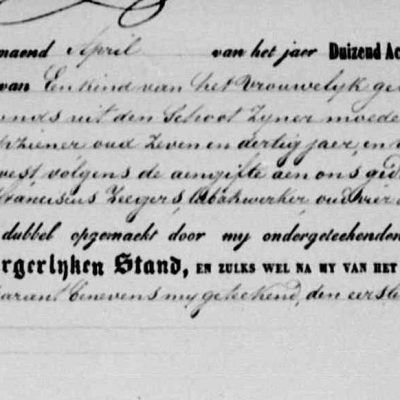 maend April van het jaer Duizend Ac
van Een kind van het Vrouwelyk ge
uit den Schoot Zyner moede
oud Zeven en dertig jaer, en
volgens de aengifte aen ons ged
Franciscus Zeegers, tabakwerker, oud vier
dubbel opgemaekt door my ondergeteekenden
rgerlyken Stand, EN ZULKS WEL NA MY VAN HET
parant benevens my geteekend, den eerste